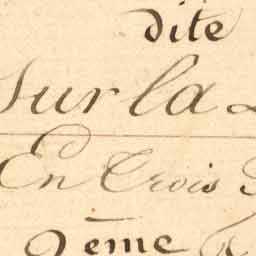 dite
Sur la
En Trois
2eme